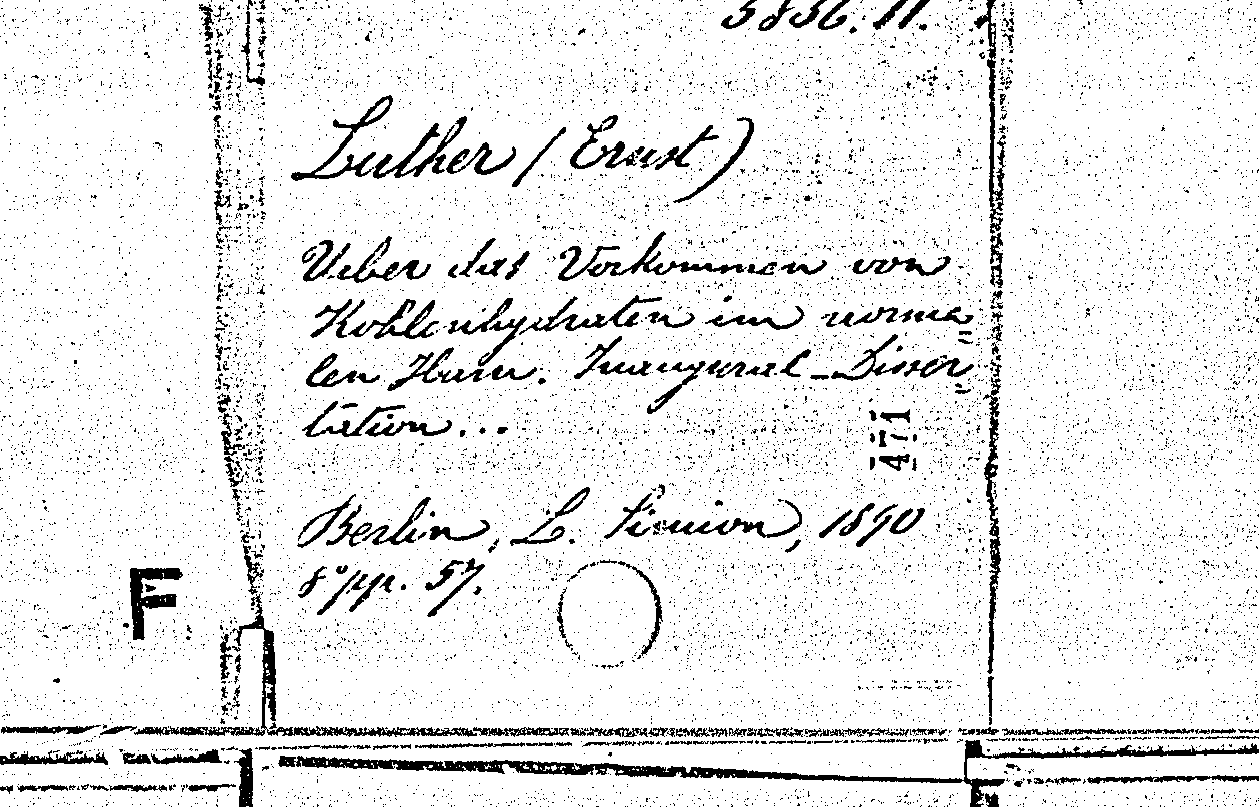 5836.11.
Luther (Ernst)
Ueber das Vorkommen von
Kohlenhydraten im norma
len Harn. Inaugural-Disser
tation...
471
Berlin, L. Simion, 1890
8° pp. 57.
F